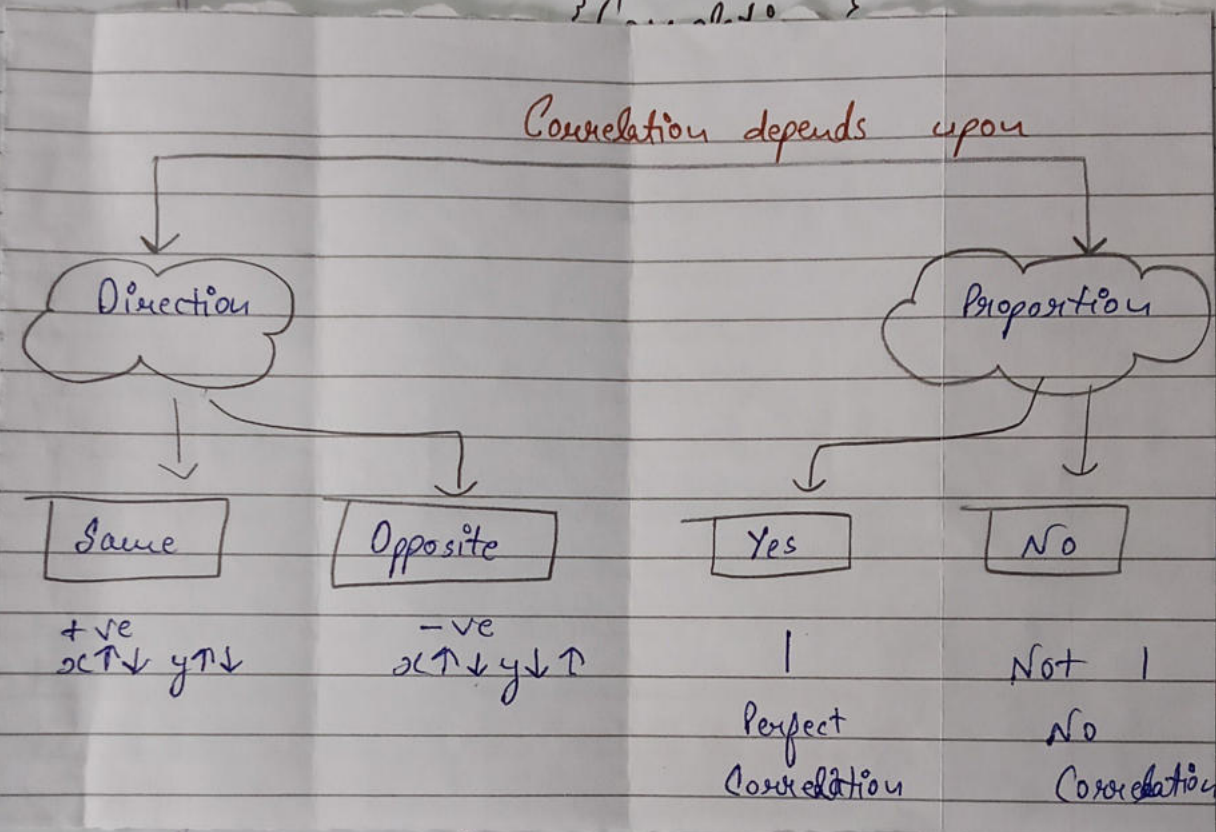 Correlation depends upon
Direction
Proportion
Same
Opposite
Yes
No
+ve
x↑↓ y↑↓
-ve
x↑↓ y↓↑
1
Perfect
Correlation
Not 1
No
Correlation